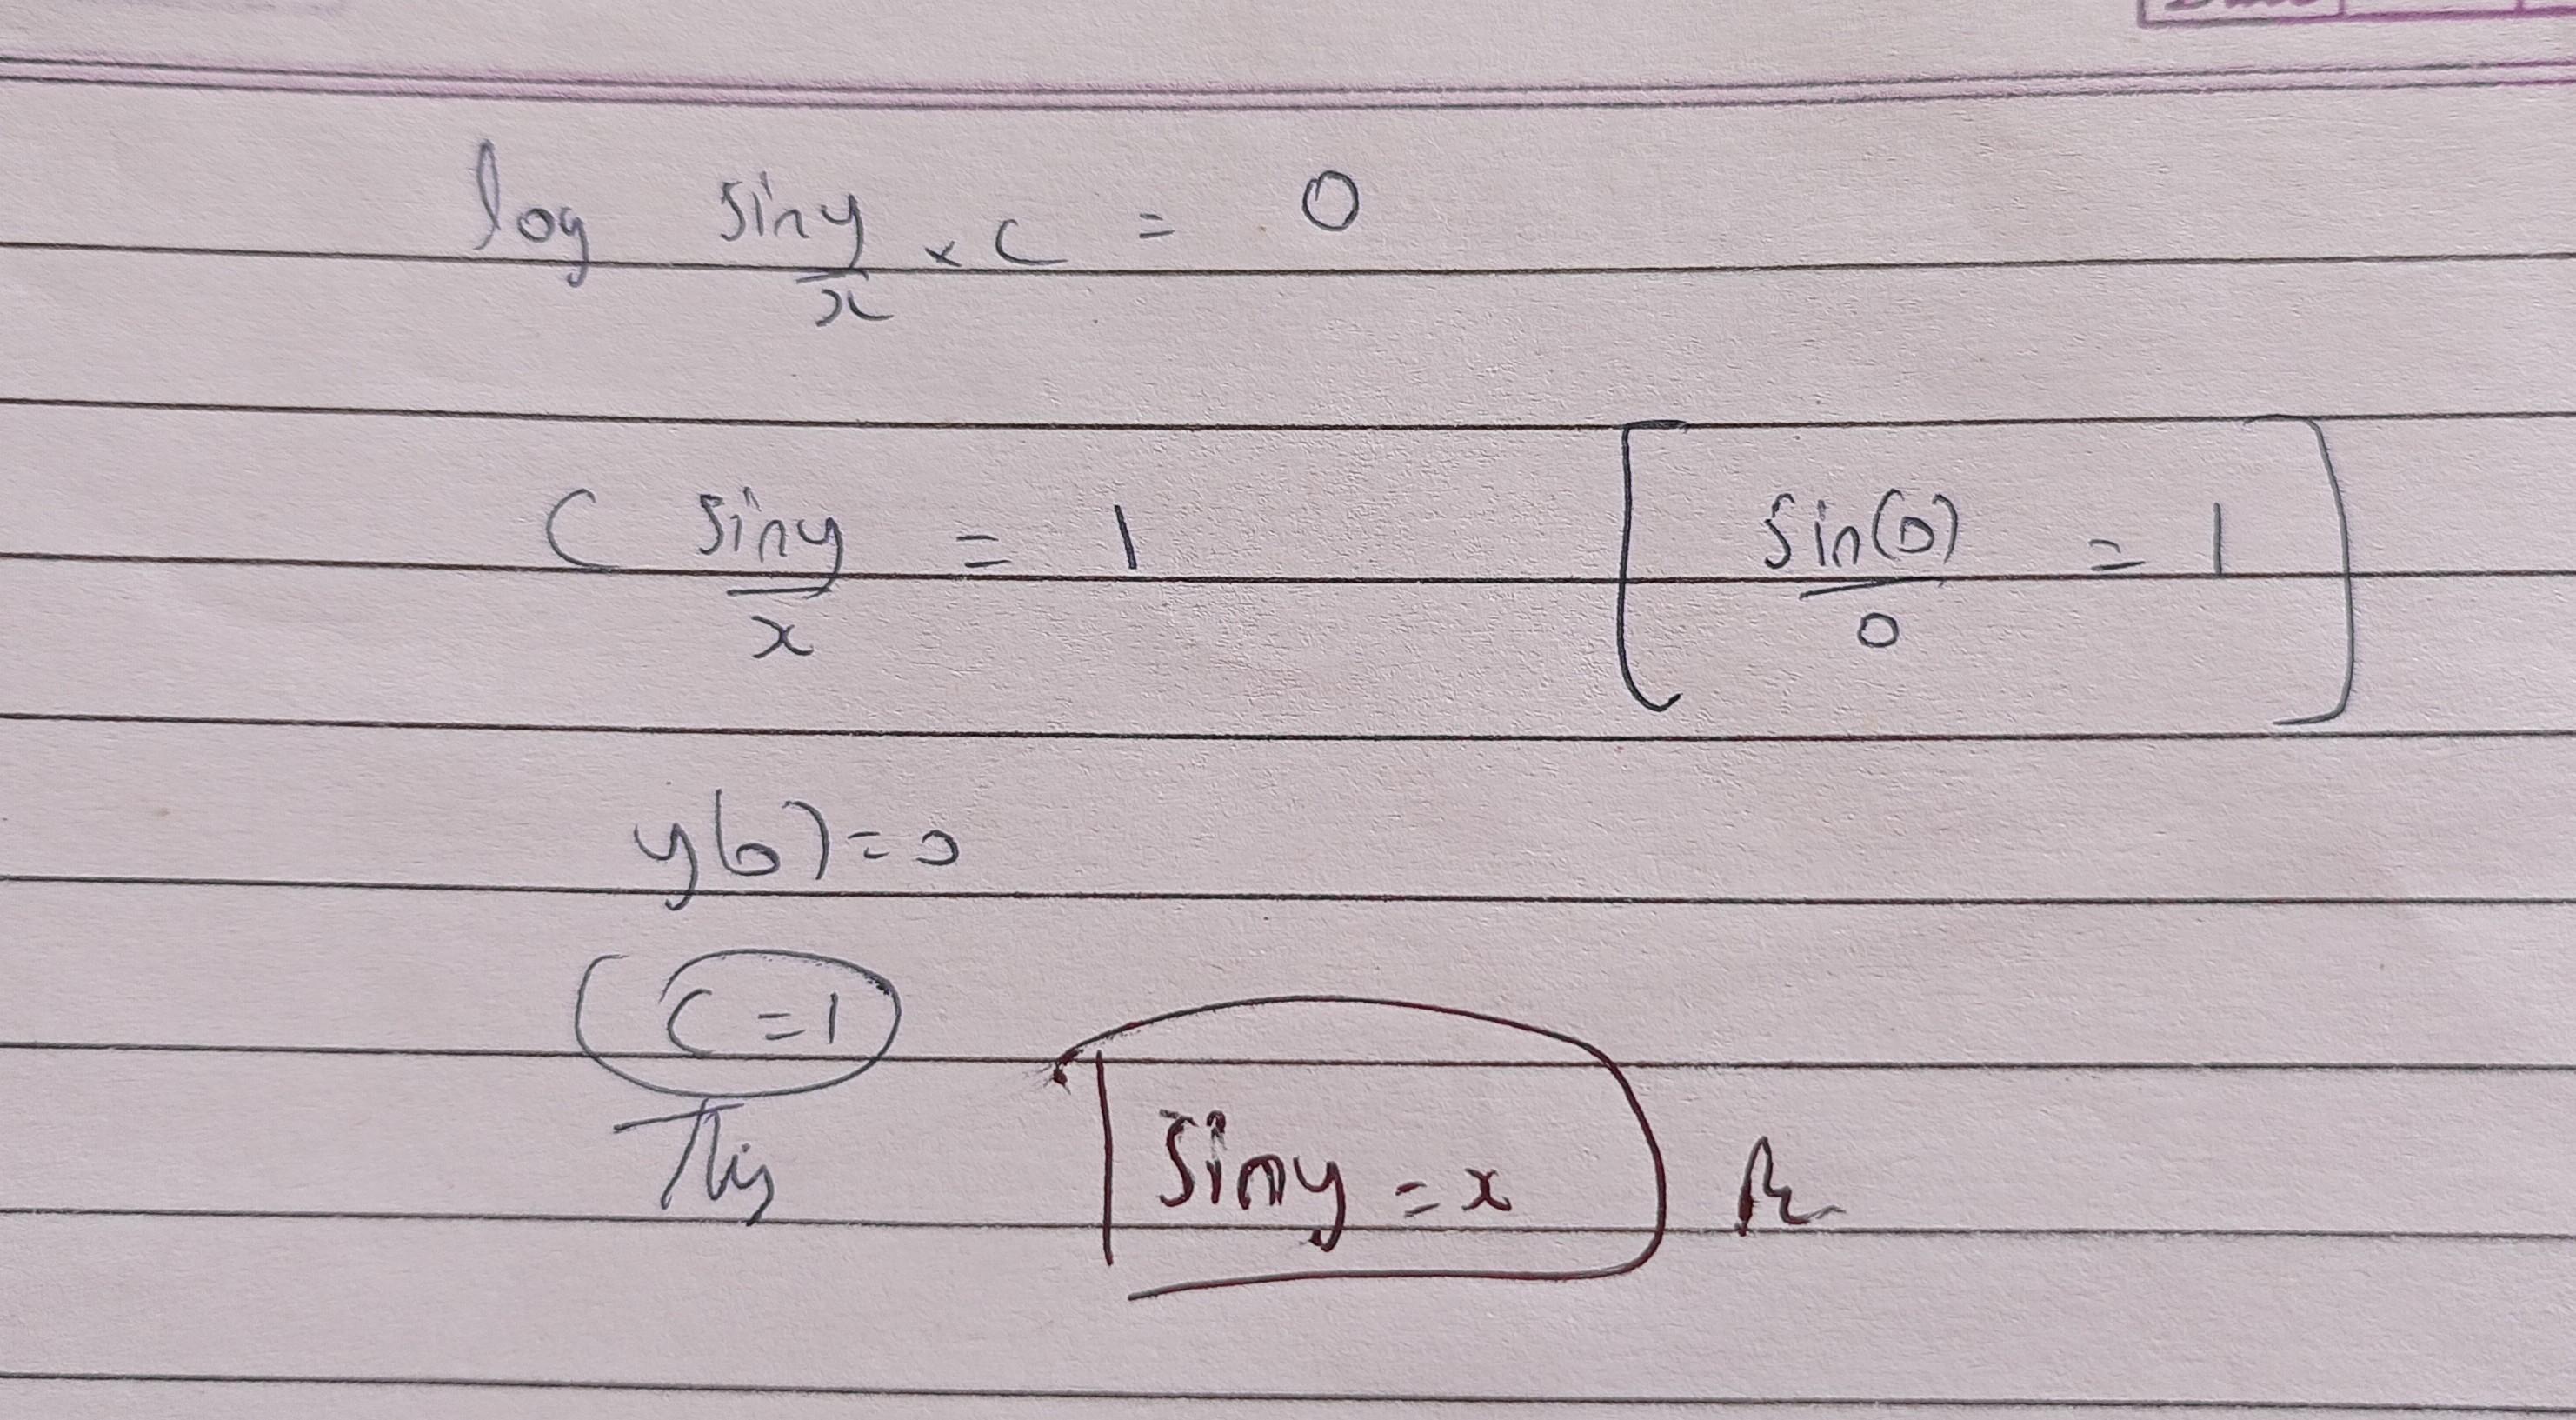 log siny/x × c = 0
C siny/x = 1 [ sin(0)/0 = 1 ]
y(0) = 0
C = 1
This siny = x